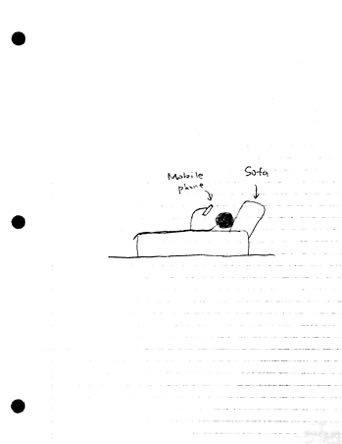 Mobile
phone
Sofa